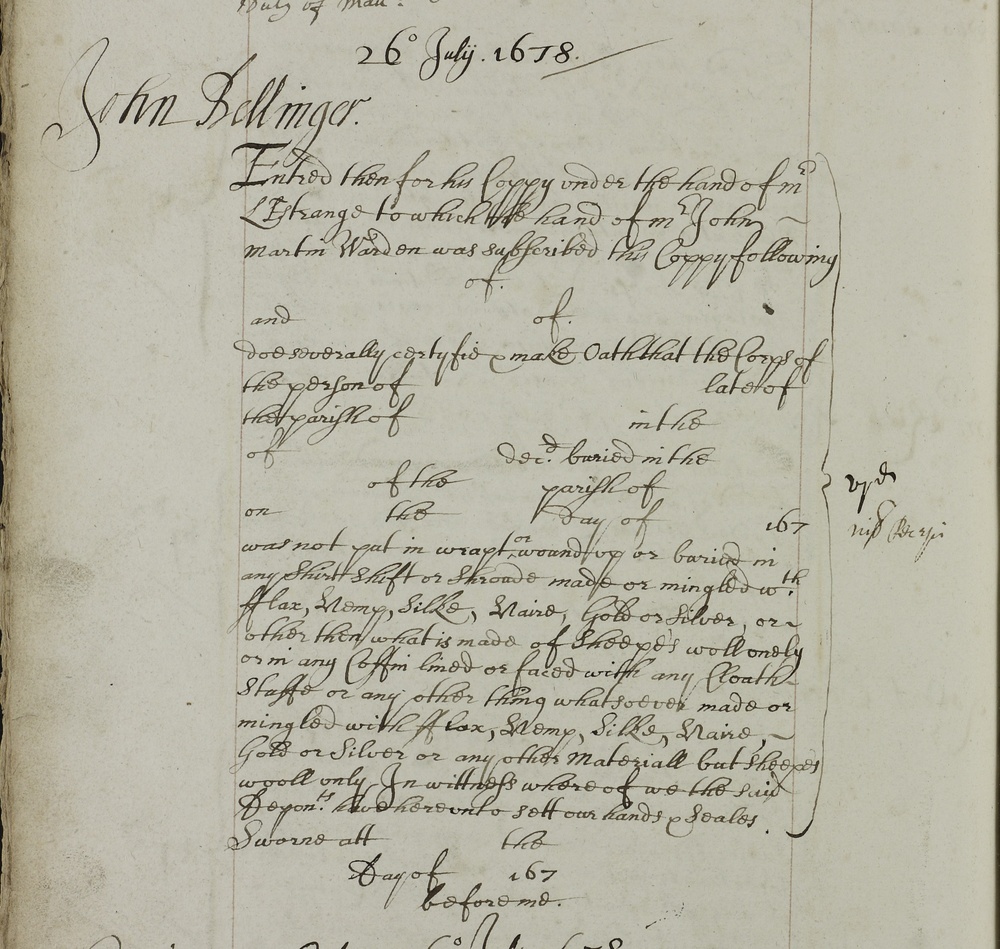 Duty of Man.
26° July. 1678.
John Bellinger.
Entred then for his Coppy vnder the hand of mr
LEstrange to which the hand of mr John
Martin Warden was subscribed this Coppy following
of.
and of.
doe severally certyfie & make Oath that the Corps of
the person of late of
the parish of in the
of decd. buried in the
of the parish of
on the day of 167
was not put in wrapt or wound vp or buried in
any Shirt Shift or Shroude made or mingled wth.
fflax, Hemp, Silke, Haire, Gold or Silver, or
other then what is made of Sheepe's wooll onely
or in any Coffin lined or faced with any Cloath
Stuffe or any other thing whatsoever made or
mingled with fflax, Hemp, Silke, Haire,
Gold or Silver or any other Materiall but sheepes
wooll only. In wittness where of we the said
Depon.ts have herevnto sett our hands & Seales.
Sworne att the
Day of 167
before me.
vjd